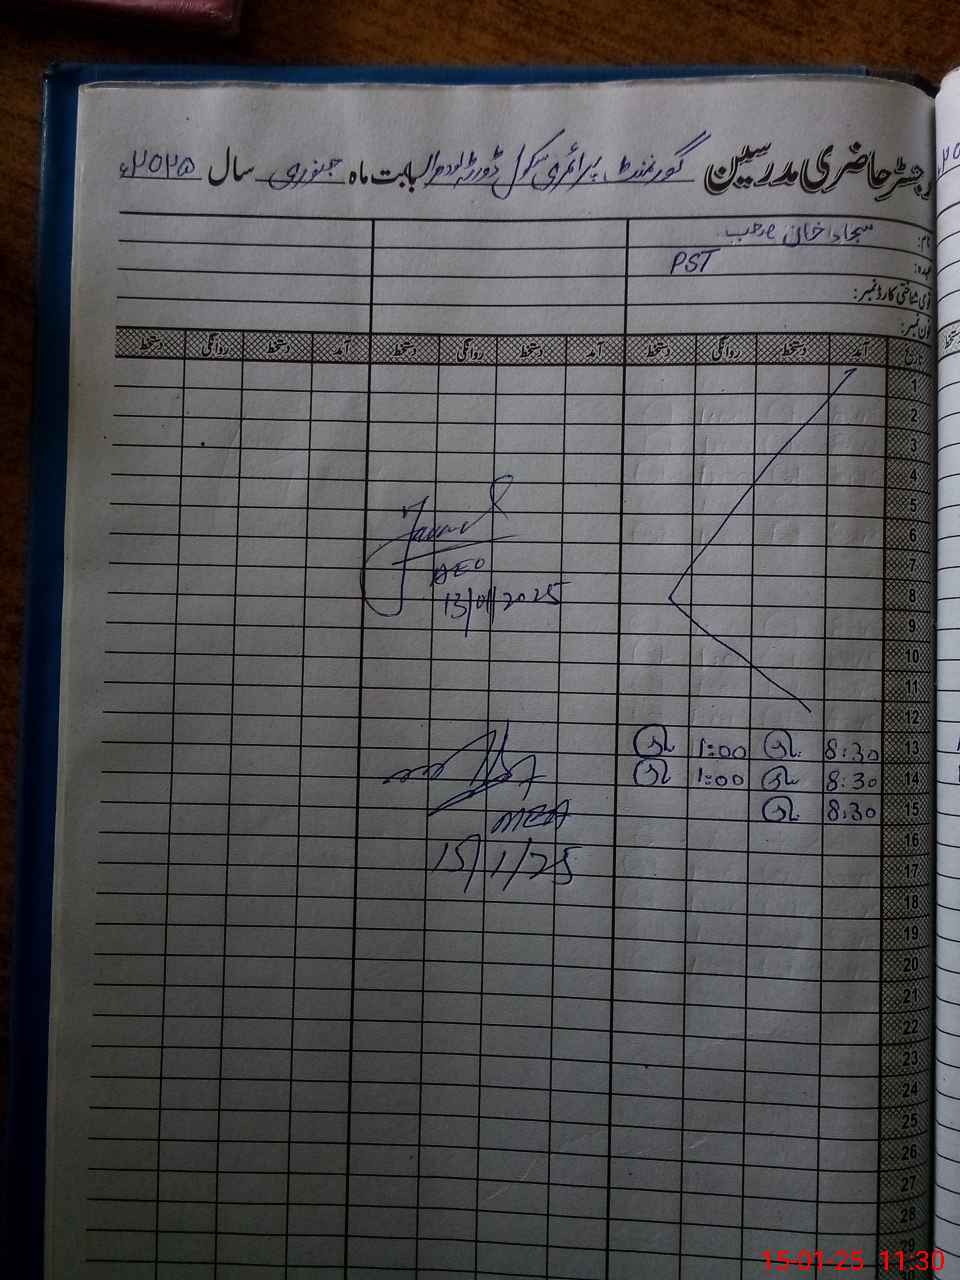 رجسٹر حاضری مدرسین گورنمنٹ پرائمری سکول بابت ماہ جنوری سال ۲۰۲۵ء
نام: سجاد خان صاحب
عہدہ: PST
قومی شناختی کارڈ نمبر:
فون نمبر:
تاریخ آمد دستخط روانگی دستخط آمد دستخط روانگی دستخط آمد دستخط روانگی دستخط
1
2
3
4
5
6
7
8
9
10
11
12
13 8:30 1:00
14 8:30 1:00
15 8:30
16
17
18
19
20
21
22
23
24
25
26
27
28
29
AEO
13/01/2025
MEA
15/1/25
15-01-25 11:30